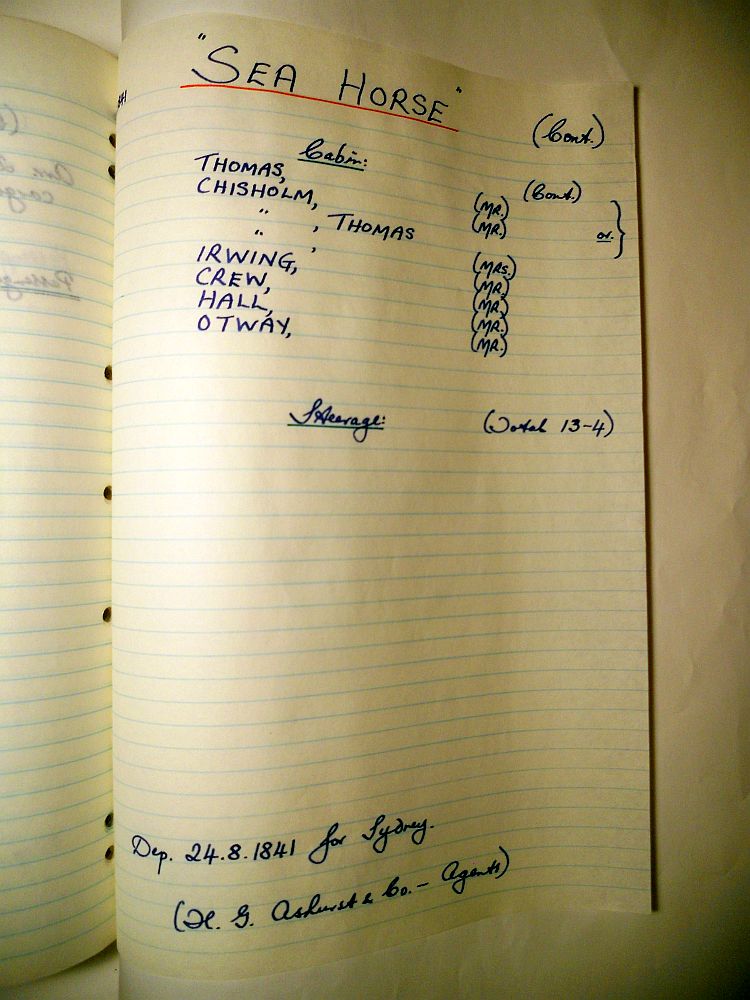 "SEA HORSE"
(Cont.)
Cabin: (Cont.)
THOMAS, (MR.)
CHISHOLM, (MR.)
" , THOMAS or. }
" , (MRS.)
IRWING, (MR.)
CREW, (MR.)
HALL, (MR.)
OTWAY, (MR.)
Steerage: (Total 13-4)
Dep. 24.8.1841 for Sydney.
(H. G. Ashurst & Co. - Agents)